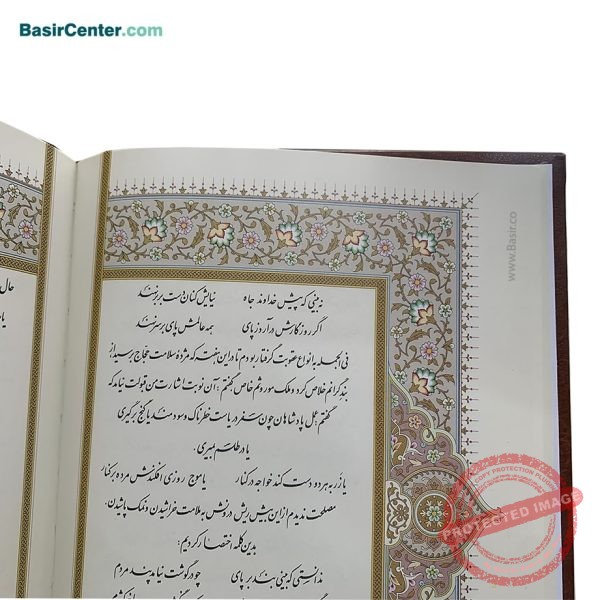 BasirCenter.com
نه بینی که پیش خداوند جاه نیایش کنان دست بر بر نهند
اگر روزگارش درآرد ز پای همه عالمش پای بر سر نهند
فی الجمله به انواع عقوبت گرفتار بودم تا درین هفته که مژدهٔ سلامت حجاج برسید از
بند گرانم خلاص کرد و ملک موروثم خاص گفتم: آن نوبت اشارت من قبولت نیامد که
گفتم عمل پادشاهان چون سفر دریاست خطرناک و سودمند یا گنج برگیری
یا در طلسم بمیری.
یا زر به هر دو دست کند خواجه در کنار یا موج روزی افکندش مرده بر کنار
مصلحت ندیدم از این بیش ریش درونش به ملامت خراشیدن و نمک پاشیدن.
بدین کلمه اختصار کردیم:
ندانستی که بینی بند بر پای چو در گوشت نیامد پند مردم
حال
یا
www.Basir.co
PROTECTED IMAGE
COPY PROTECTION PLUGIN